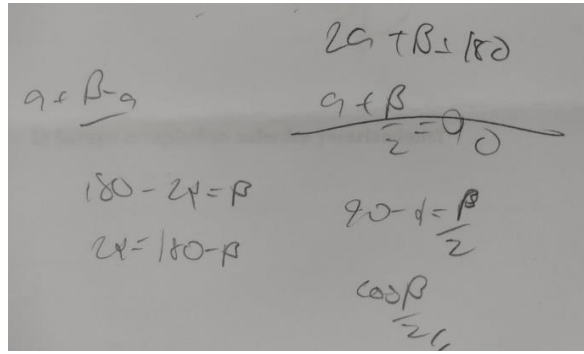 2a + β = 180
a + β/2 = 90
a + β - a
180 - 2α = β
2α = 180 - β
90 - α = β/2
cos β/2